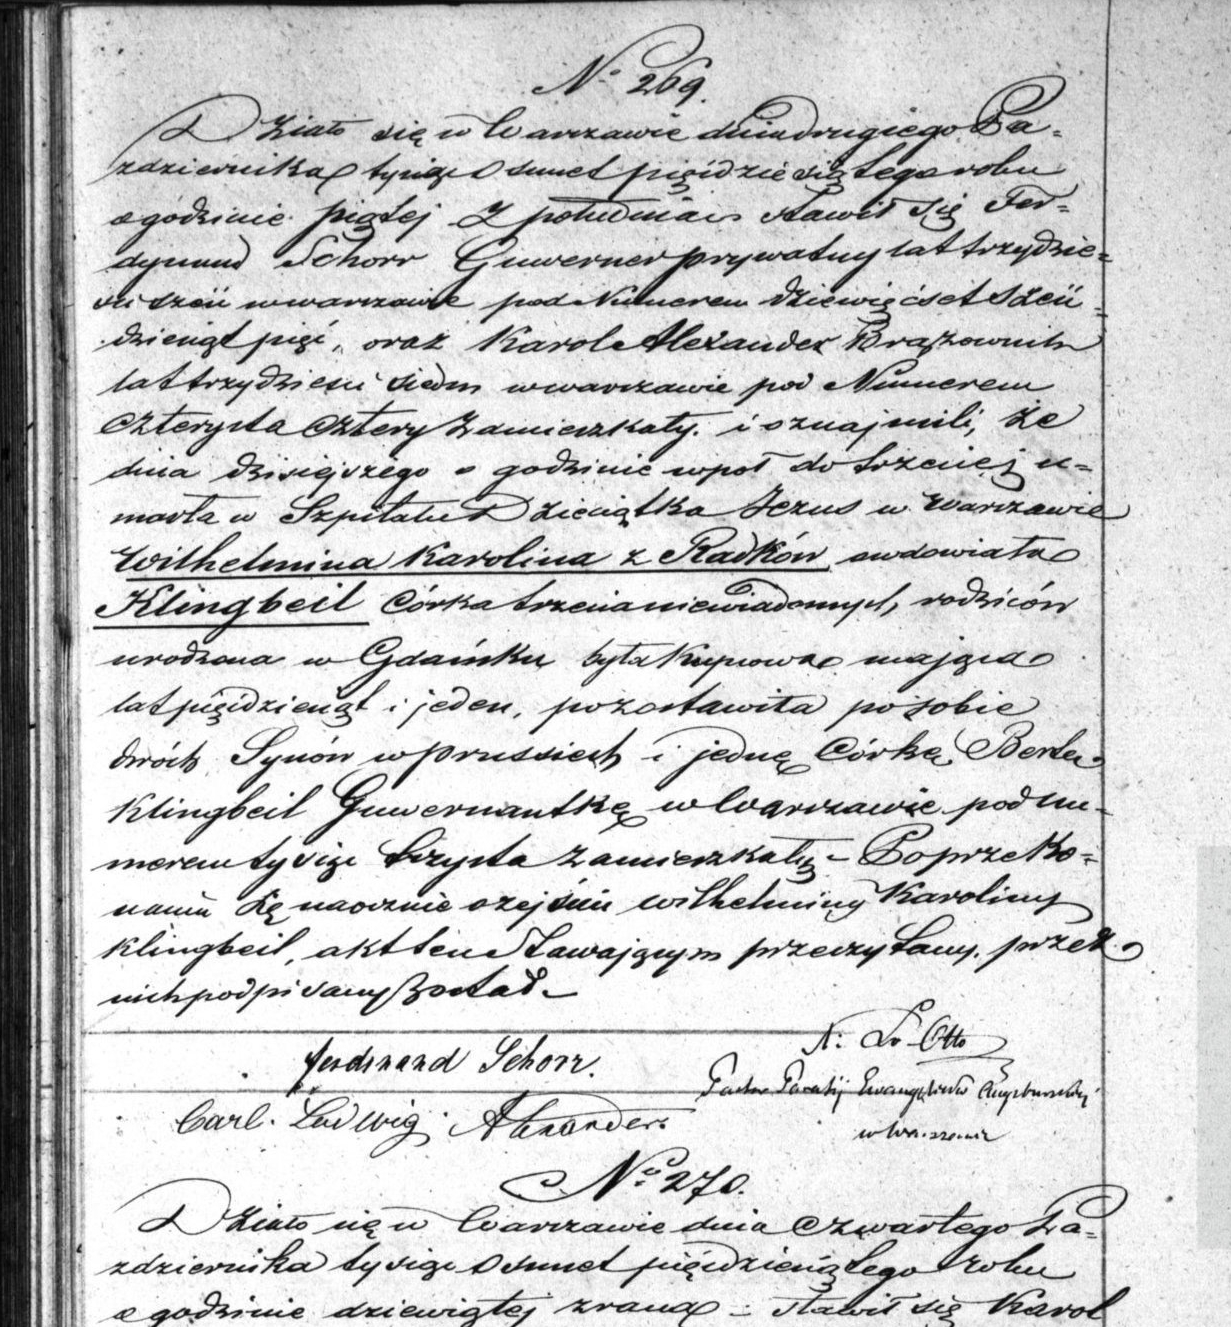 No 269.
Działo się w Warszawie dnia drugiego Pa=
zdziernika tysiąc osmset pięćdziesiątego roku
o godzinie piątej z południa stawił się Fer=
dynand Schorr Guwerner prywatny lat trzydzie=
ści sześć w warszawie pod Numerem dziewięćset sześć=
dziesiąt pięć, oraz Karol Alexander Brązownik
lat trzydzieści siedm w warszawie pod Numerem
czterysta cztery zamieszkały. i oznajmili, że
dnia dzisiejszego o godzinie wpoł do trzeciej u=
marła w Szpitalu Dzieciątka Jezus w Warszawie
Wilhelmina Karolina z Radków owdowiała
Klingbeil Córka trzecia niewiadomych, rodziców
urodzona w Gdańsku była Kupcowa mająca
lat pięćdziesiąt i jeden, pozostawiła po sobie
dwóch Synów w Prussiech i jednę Córkę Berta
Klingbeil Guwernantkę w Warszawie pod Nu=
merem tysiąc trzysta zamieszkałą – Po przeko=
naniu się naocznie o zejściu Wilhelminy Karoliny
Klingbeil, akt ten stawającym przeczytany, przez
nich podpisany został. –
Ferdinand Schorr.
X: Lr Otto
Pastor Parafij Ewangelicko Augsburskiej
w Warszawie
Carl. Ludwig Alexander.
No 270.
Działo się w Warszawie dnia czwartego Pa=
zdziernika tysiąc osmset pięćdziesiątego roku
o godzinie dziewiątej zrana – stawił się Karol